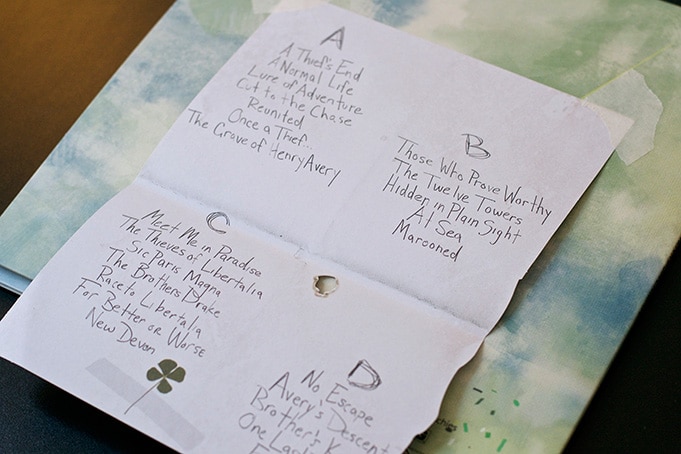 A
A Thief's End
A Normal Life
Lure of Adventure
Cut to the Chase
Reunited
Once a Thief...
The Grave of Henry Avery
B
Those Who Prove Worthy
The Twelve Towers
Hidden in Plain Sight
At Sea
Marooned
C
Meet Me in Paradise
The Thieves of Libertalia
Sic Parvis Magna
The Brothers Drake
Race to Libertalia
For Better or Worse
New Devon
D
No Escape
Avery's Descent
Brother's
One